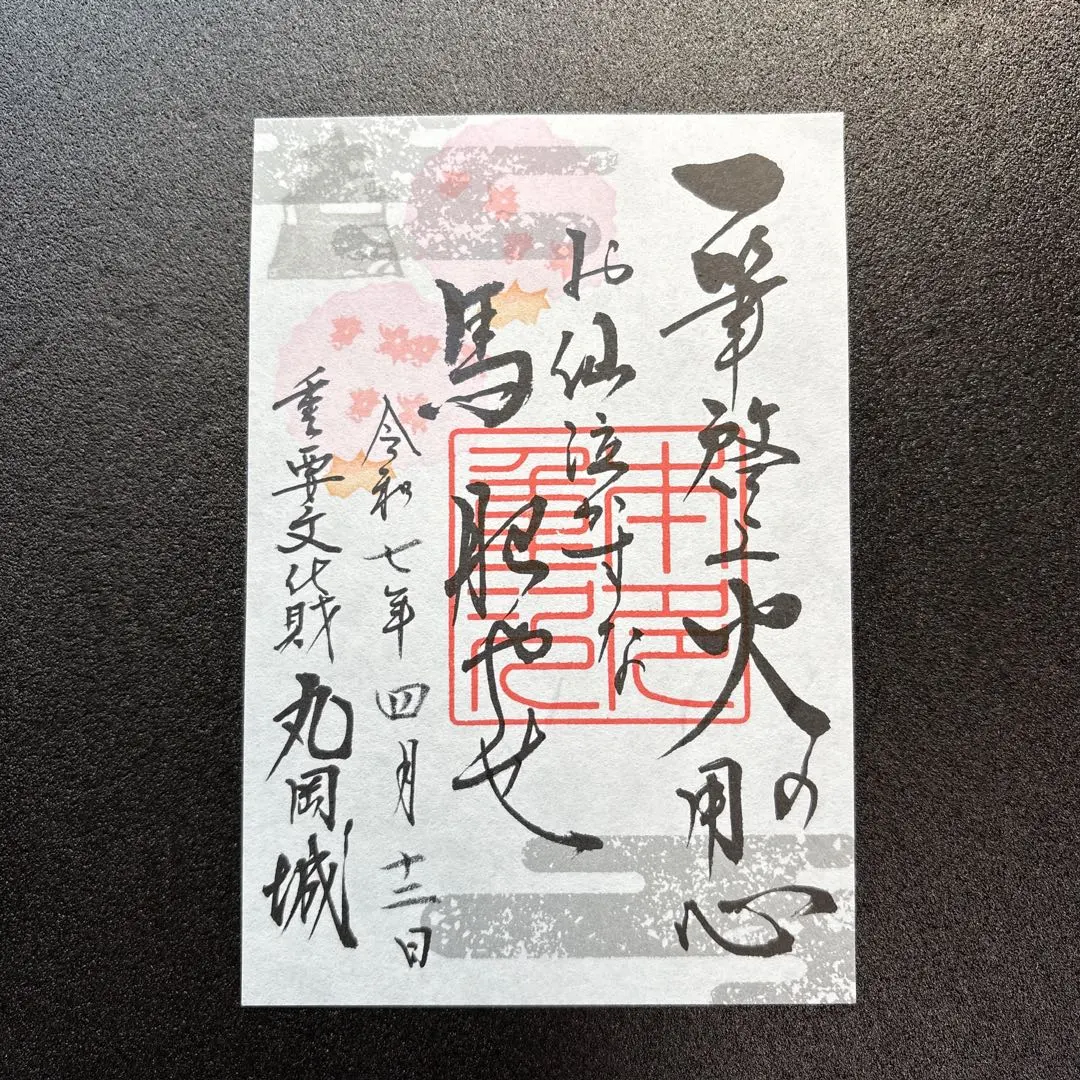 一筆啓上火の用心
お仙泣かすな
馬肥やせ
令和七年四月十二日
重要文化財 丸岡城